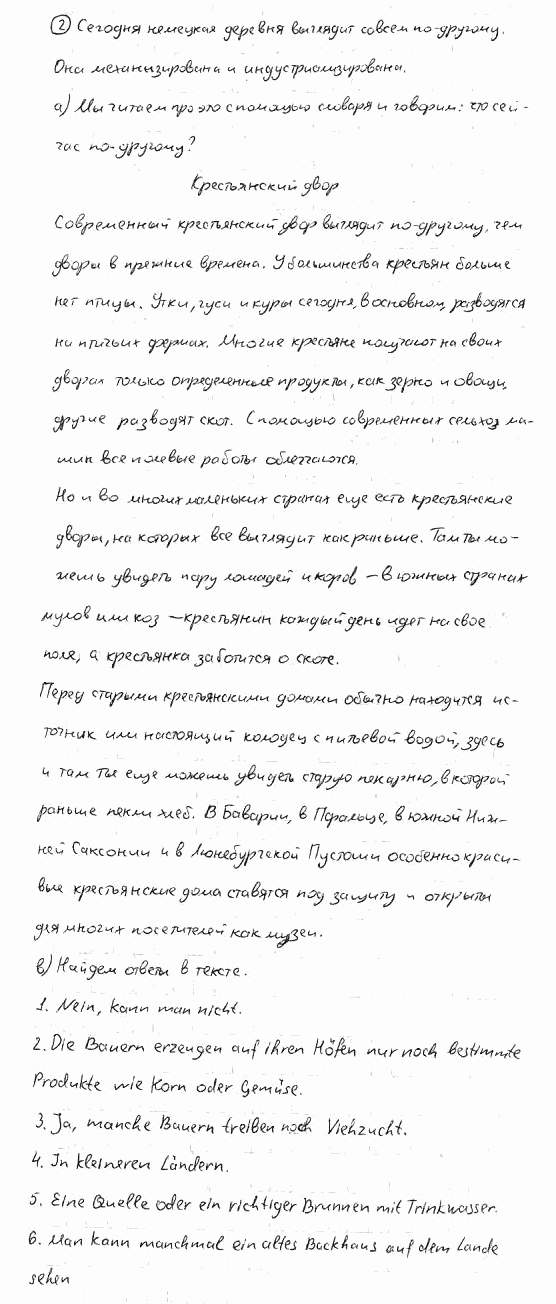 ② Сегодня немецкая деревня выглядит совсем по-другому.
Она механизирована и индустриализирована.
а) Мы читаем про это с помощью словаря и говорим: что сей-
час по-другому?
Крестьянский двор
Современный крестьянский двор выглядит по-другому, чем
дворы в прежние времена. У большинства крестьян больше
нет птицы. Утки, гуси и куры сегодня, в основном, разводятся
на птичьих фермах. Многие крестьяне получают на своих
дворах только определенные продукты, как зерно и овощи,
другие разводят скот. С помощью современных сельхоз ма-
шин все полевые работы облегчаются.
Но и во многих маленьких странах еще есть крестьянские
дворы, на которых все выглядит как раньше. Там ты мо-
жешь увидеть пару лошадей и коров – в южных странах
мулов или коз – крестьянин каждый день идет на свое
поле, а крестьянка заботится о скоте.
Перед старыми крестьянскими домами обычно находится ис-
точник или настоящий колодец с питьевой водой, здесь
и там ты еще можешь увидеть старую пекарню, в которой
раньше пекли хлеб. В Баварии, в Пфальце, в южной Ниж-
ней Саксонии и в Люнебургской Пустоши особенно краси-
вые крестьянские дома ставятся под защиту и открыты
для многих посетителей как музеи.
в) Найдем ответы в тексте.
1. Nein, kann man nicht.
2. Die Bauern erzeugen auf ihren Höfen nur noch bestimmte
Produkte wie Korn oder Gemüse.
3. Ja, manche Bauern treiben noch Viehzucht.
4. In kleineren Ländern.
5. Eine Quelle oder ein richtiger Brunnen mit Trinkwasser.
6. Man kann manchmal ein altes Backhaus auf dem Lande
sehen